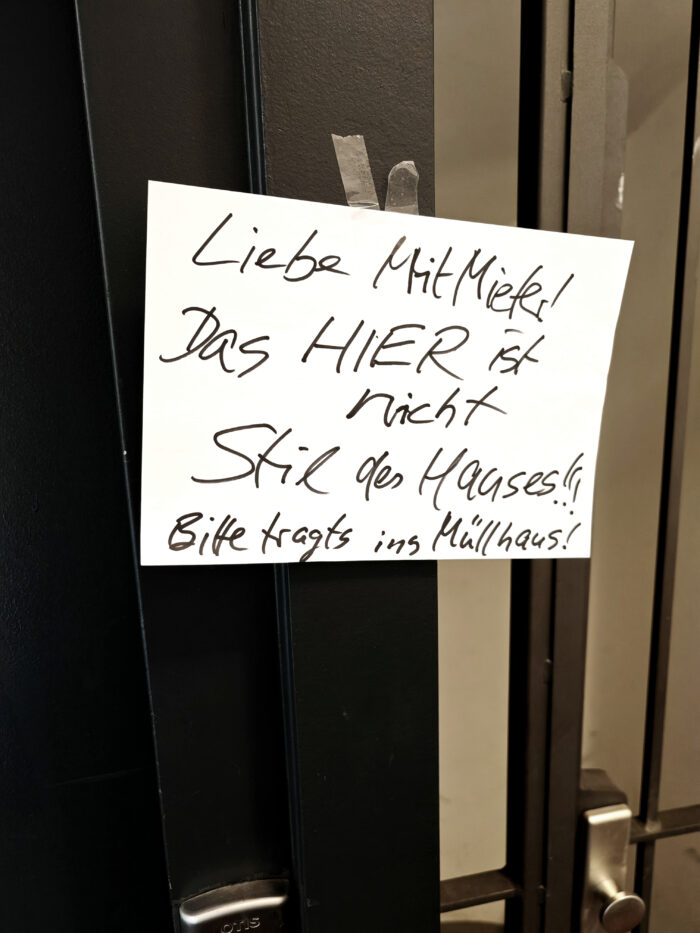 Liebe MitMieter!
Das HIER ist
nicht
Stil des Hauses!!!
Bitte tragts ins Müllhaus!
OTIS